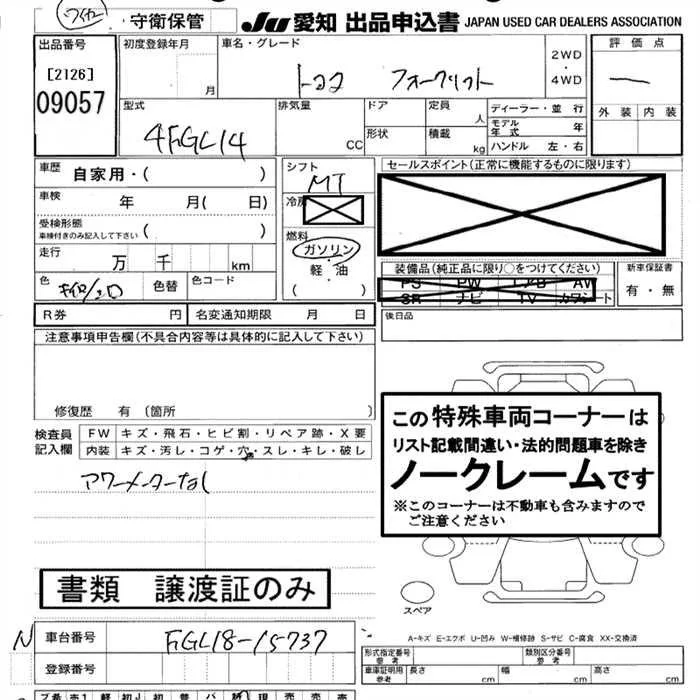 守衛保管
JU 愛知 出品申込書 JAPAN USED CAR DEALERS ASSOCIATION
出品番号
[2126]
09057
初度登録年月
月
車名・グレード
トヨタ フォークリフト
2WD
・
4WD
評価点
外装 内装
型式
4FGL14
排気量
CC
ドア
形状
定員
人
積載
kg
ディーラー・並 行
モデル年式 年
ハンドル 左・右
車歴
自家用・( )
車検
年 月( 日)
受検形態
車検付きのみ記入して下さい ( )
走行
万 千 km
色
色替
色コード
シフト
MT
冷房
燃料
ガソリン
・
軽・油
( )
セールスポイント(正常に機能するものに限ります)
装備品(純正品に限り○をつけてください)
PS PW エアB AW
SR ナビ TV カワシート
新車保証書
有・無
R券 円 名変通知期限 月 日
後日品
注意事項申告欄(不具合内容等は具体的に記入して下さい)
修復歴 有 〔箇所 〕
検査員
記入欄
FW キズ・飛石・ヒビ割・リペア跡・X要
内装 キズ・汚レ・コゲ・穴・スレ・キレ・破レ
アワーメーターなし
この特殊車両コーナーは
リスト記載間違い・法的問題車を除き
ノークレームです
※このコーナーは不動車も含みますので
ご注意ください
書類 譲渡証のみ
スペア
A-キズ E-エクボ U-凹み W-補修跡 S-サビ C-腐食 XX-交換済
N 車台番号
FGL18-15737
登録番号
形式指定番号
参考
類別区分番号
参考
車庫証明用
参考
長さ cm 幅 cm 高さ cm